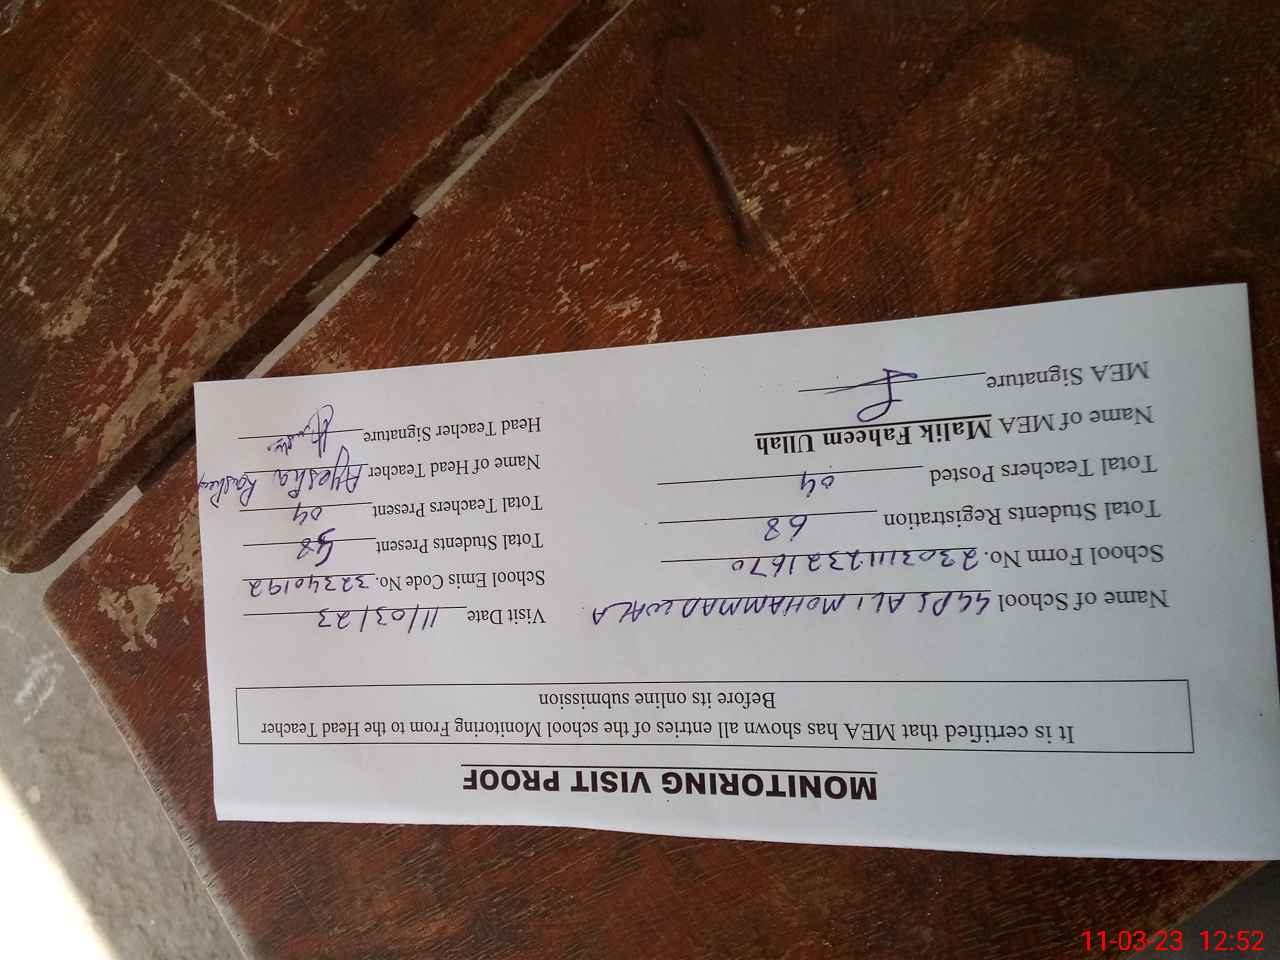 MONITORING VISIT PROOF
It is certified that MEA has shown all entries of the school Monitoring From to the Head Teacher
Before its online submission
Name of School GGPS ALI MOHAMMAD WALA Visit Date 11/03/23
School Form No. 23031112321670 School Emis Code No. 32340192
Total Students Registration 68 Total Students Present 58
Total Teachers Posted 04 Total Teachers Present 04
Name of MEA Malik Faheem Ullah Name of Head Teacher Ayesha
MEA Signature Head Teacher Signature
11-03-23 12:52